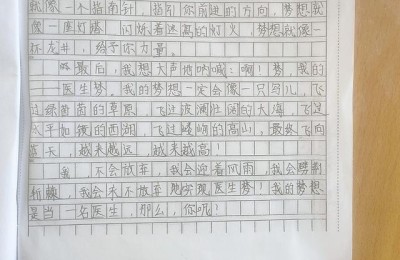 就像一个指南针，指引你前进的方向，梦想就
像一座灯塔，闪烁着远高的灯火，梦想就像一
杯龙井，给予你力量。
最后，我想大声地呐喊：啊！梦，我的
——医生梦，我的梦想一定会像一只鸟儿，飞
过绿茵茵的草原，飞过波澜壮阔的大海，飞过
平如镜的西湖，飞过峻峭的高山，最终飞向
蓝天，越来越远，越来越高！
我，不会放弃，我会迎着风雨，我会劈荆
斩棘，我会永不放弃地实现医生梦！我的梦想
是当一名医生，那么，你呢！